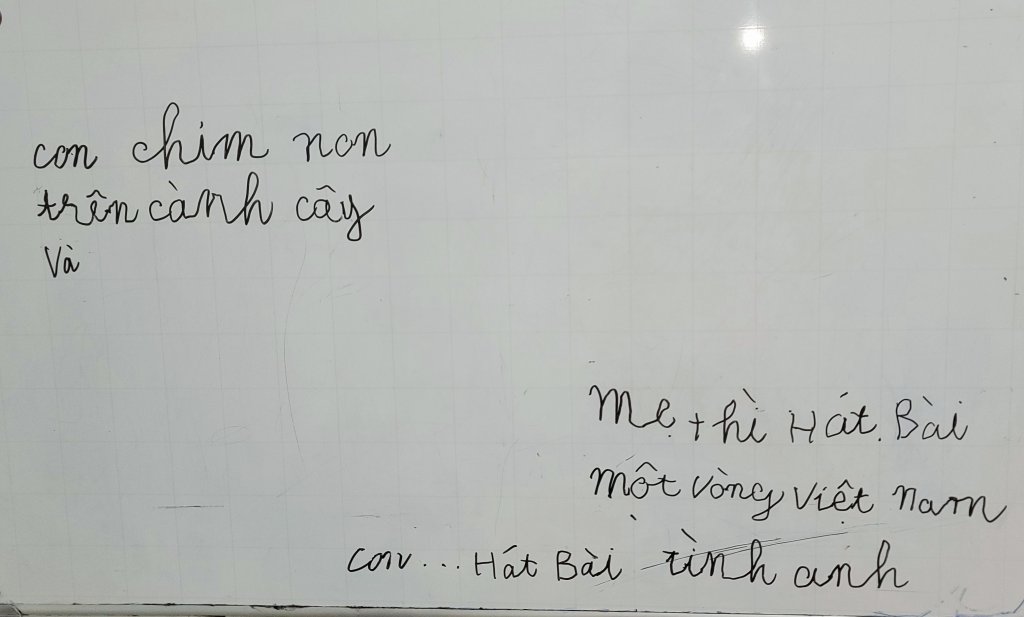 con chim non
trên cành cây
Và
Mẹ thì Hát Bài
một vòng Việt Nam
con... Hát Bài tình anh